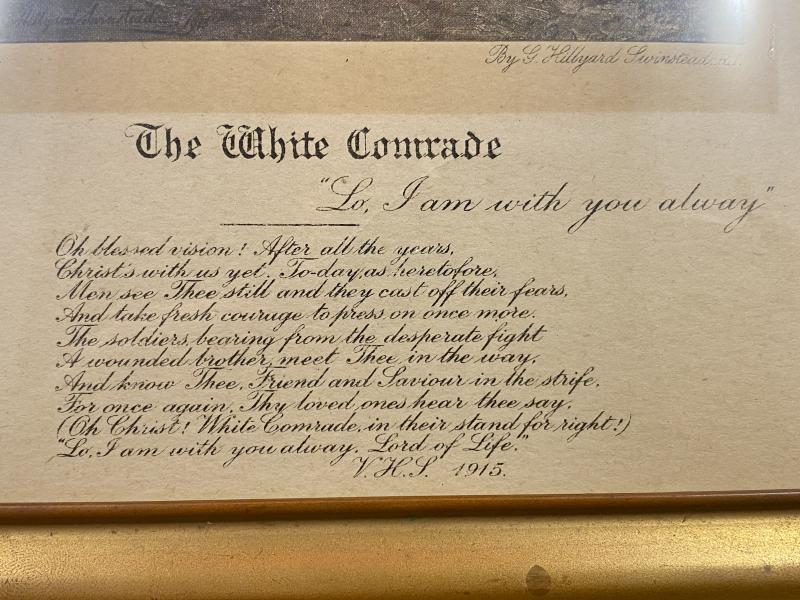 By G. Hillyard Swinstead, R.I.
The White Comrade
"Lo, I am with you alway"
Oh blessed vision! After all the years,
Christ's with us yet. To-day, as heretofore,
Men see Thee still and they cast off their fears,
And take fresh courage to press on once more.
The soldiers, bearing from the desperate fight
A wounded brother, meet Thee in the way,
And know Thee, Friend and Saviour in the strife.
For once again, Thy loved ones hear thee say,
(Oh Christ! White Comrade, in their stand for right!)
"Lo, I am with you alway, Lord of Life."
V.H.S. 1915.